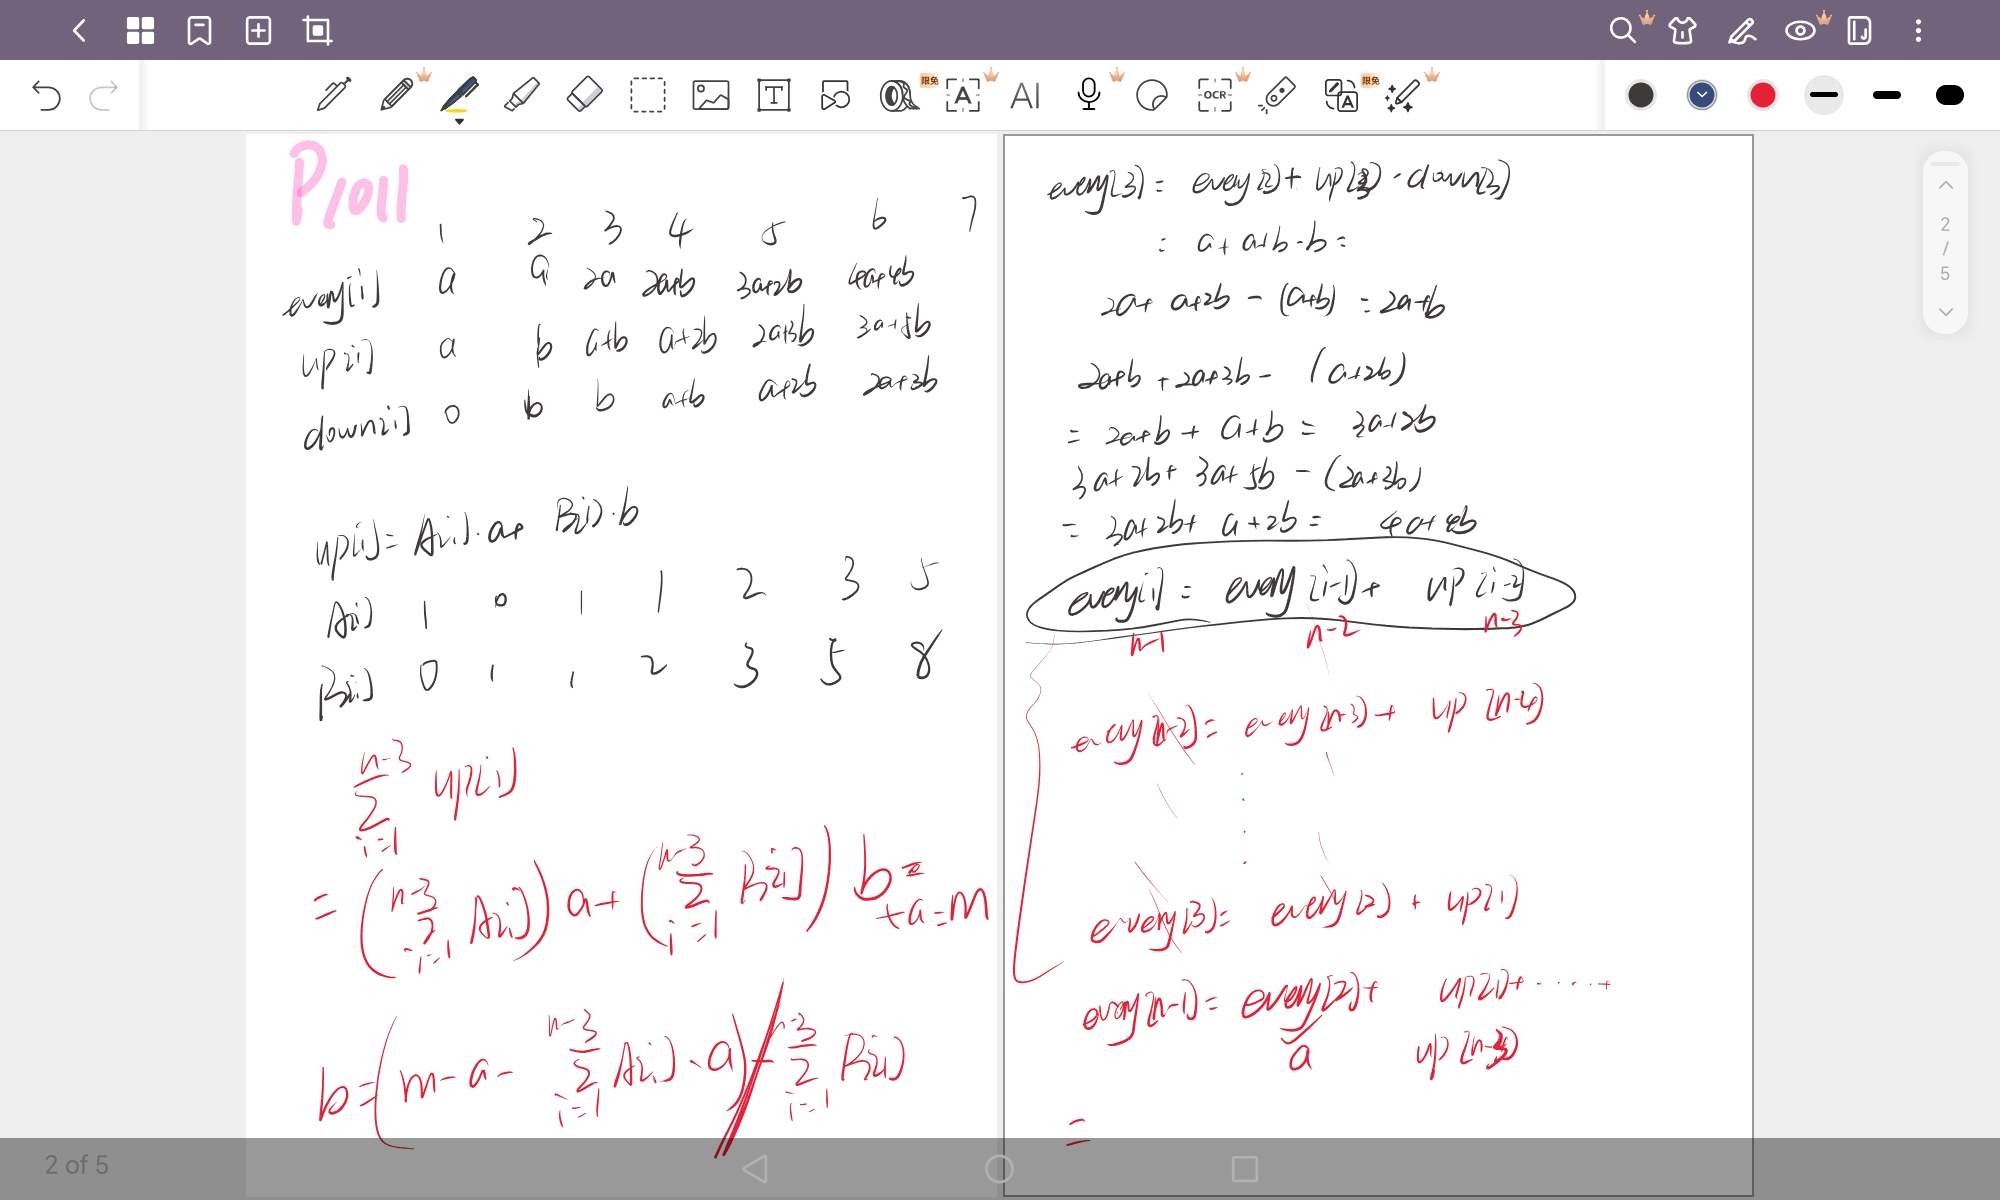 限免
A
T
AI
OCR
限免
P1011
1 2 3 4 5 6 7
every[i] a a 2a 2a+b 3a+2b 4a+4b
up[i] a b a+b a+2b 2a+3b 3a+5b
down[i] 0 b b a+b a+2b 2a+3b
up[i] = A[i]·a+ B[i]·b
A[i] 1 0 1 1 2 3 5
B[i] 0 1 1 2 3 5 8
n-3
∑ up[i]
i=1
= (n-3 ∑ i=1 A[i]) a+ (n-3 ∑ i=1 B[i]) b
+a=m
b=(m-a- n-3 ∑ i=1 A[i]·a) / n-3 ∑ i=1 B[i]
every[3] = every[2]+ up[3] - down[3]
= a+ a+b-b =
2a+ a+2b - (a+b) = 2a+b
2a+b + 2a+3b - (a+2b)
= 2a+b + a+b = 3a+2b
3a+2b+ 3a+5b - (2a+3b)
= 3a+2b+ a+2b = 4a+4b
every[i] = every[i-1]+ up[i-2]
n-1 n-2 n-3
every[n-2]= every[n-3]+ up[n-4]
every[3]= every[2] + up[1]
every[n-1]= every[2]+ up[1]+ ·····+
a up[n-3]
=
2
/
5
2 of 5